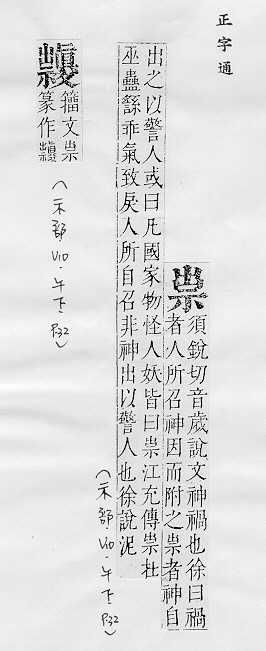 正字通
祟
須銳切音歲說文神禍也徐曰禍
者人所召神因而附之祟者神自
出之以警人或曰凡國家物怪人妖皆曰祟江充傳祟杜
巫蠱繇乖氣致戾人所自召非神出以警人也徐說泥
(示部 V10·午下 P32)
籒文祟
篆作
(示部 V10·午下 P32)